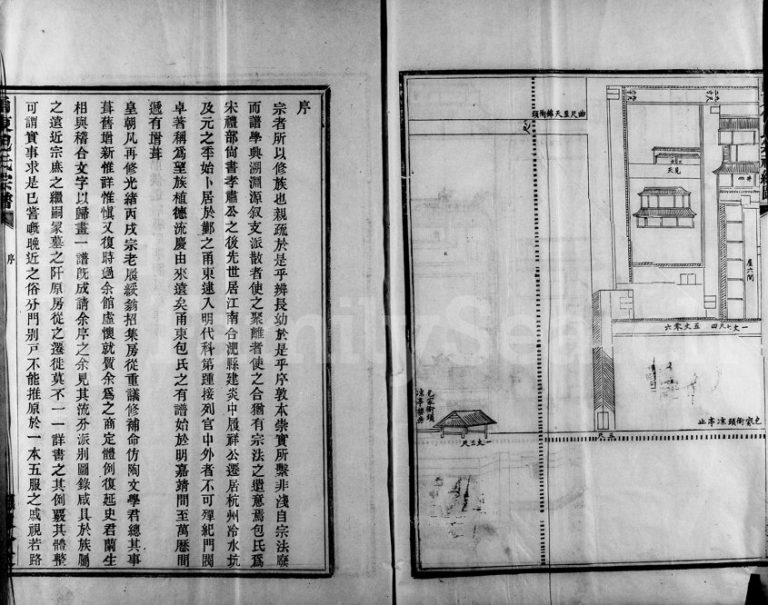 序
宗者所以修族也親疏於是乎辨長幼於是乎序敦本崇實所繫非淺自宗法廢
而譜學興溯淵源叙支派散者使之聚離者使之合猶有宗法之遺意焉包氏爲
宋禮部尙書孝肅公之後先世居江南合淝縣建炎中履祥公遷居杭州冷水坑
及元之季始卜居於鄞之甬東逮入明代科第踵接列官中外者不可殫紀門閥
卓著稱爲望族植德流慶由來遠矣甬東包氏之有譜始於明嘉靖間至萬曆間
遞有增葺
皇朝凡再修光緒丙戌宗老履綏翁招集房從重議修補命仿陶文學君總其事
葺舊增新惟詳惟慎又復時過余館虛懷就質余爲之商定體例復延史君蘭生
相與稽合文字以歸畫一譜旣成請余序之余見其流分派別圖錄咸具於族屬
之遠近宗庶之繼嗣冢墓之阡原房從之遷徙莫不一一詳書之其倒覈其體整
可謂實事求是已嘗嘅晚近之俗分門别戸不能推原於一本五服之戚視若路
東包氏宗譜
序
曲尺至天
街頭
見天
井
屋六間
一丈七尺四
五丈零六
包家衕頭涼亭
一丈三尺
包家衕頭涼亭止
Family Search